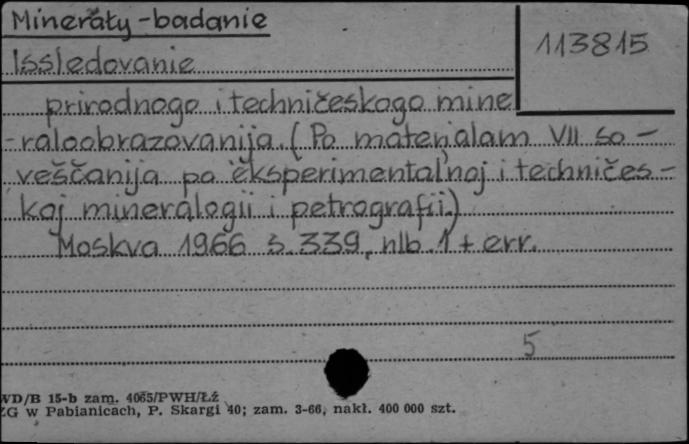 Minerały-badanie
113815
Issledovanie
prirodnogo i techničeskogo mine
-raloobrazovanija. (Po materialam VII so-
veščanija po eksperimental'noj i techničes-
koj mineralogii i petrografii.)
Moskva 1966 s. 339, nlb. 1 + err.
5
WD/B 15-b zam. 4065/PWH/Łż
ZG w Pabianicach, P. Skargi 40; zam. 3-66, nakł. 400 000 szt.